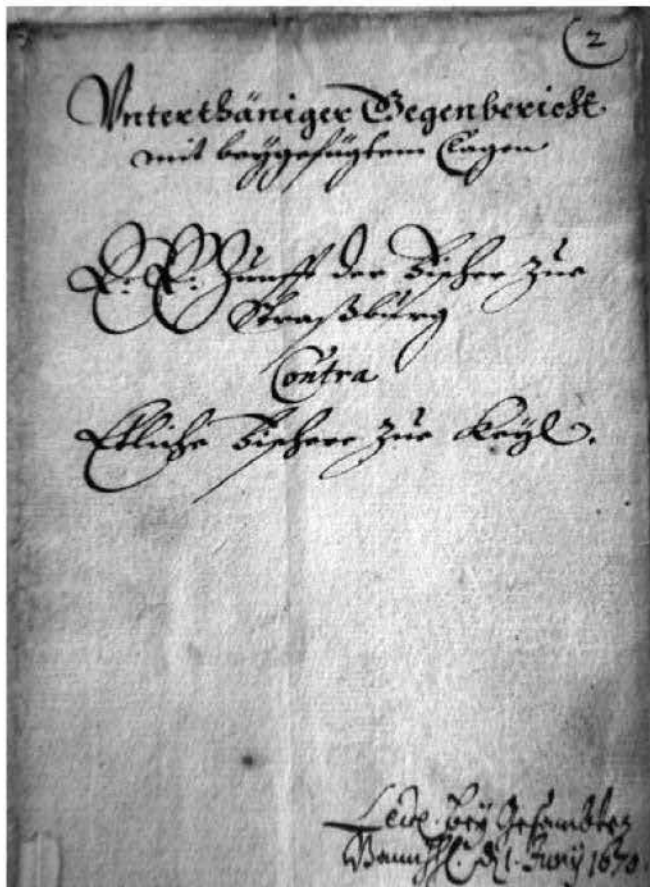 (2
Vnterthäniger Gegenbericht
mit beygefügtem Clagen
E. E. Zunfft der Fischer zue
Straßburg
Contra
Etliche Fischere zue Keyl.
Lect. bey Gesambter
den 1. Juny 1670.